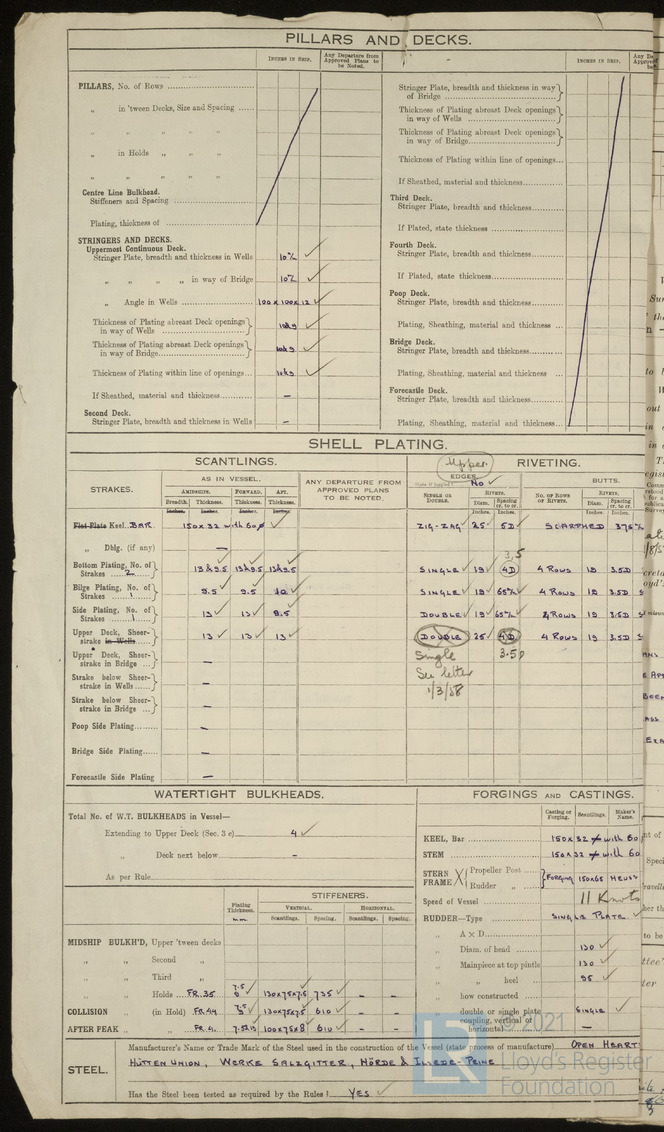 PILLARS AND DECKS.
INCHES IN SHIP.
Any Departure from Approved Plans to be Noted.
PILLARS, No. of Rows
„ in 'tween Decks, Size and Spacing
„ „ „ „
„ in Holds „ „
„ „ „ „
Centre Line Bulkhead.
Stiffeners and Spacing
Plating, thickness of
STRINGERS AND DECKS.
Uppermost Continuous Deck.
Stringer Plate, breadth and thickness in Wells
„ „ „ „ in way of Bridge
„ Angle in Wells 100 x 100 x 12 ✓
Thickness of Plating abreast Deck openings in way of Wells
Thickness of Plating abreast Deck openings in way of Bridge
Thickness of Plating within line of openings
If Sheathed, material and thickness –
Second Deck.
Stringer Plate, breadth and thickness in Wells –
INCHES IN SHIP.
Stringer Plate, breadth and thickness in way of Bridge
Thickness of Plating abreast Deck openings in way of Wells
Thickness of Plating abreast Deck openings in way of Bridge
Thickness of Plating within line of openings
If Sheathed, material and thickness
Third Deck.
Stringer Plate, breadth and thickness
If Plated, state thickness
Fourth Deck.
Stringer Plate, breadth and thickness
If Plated, state thickness
Poop Deck.
Stringer Plate, breadth and thickness
Plating, Sheathing, material and thickness
Bridge Deck.
Stringer Plate, breadth and thickness
Plating, Sheathing, material and thickness
Forecastle Deck.
Stringer Plate, breadth and thickness
Plating, Sheathing, material and thickness
SHELL PLATING.
SCANTLINGS.
STRAKES.
AS IN VESSEL.
AMIDSHIPS. FORWARD. AFT.
Breadth. Thickness. Thickness. Thickness.
Inches. Inches. Inches. Inches.
ANY DEPARTURE FROM APPROVED PLANS TO BE NOTED.
Upper
RIVETING.
EDGES No ✓
SINGLE OR DOUBLE.
RIVETS.
Diam. Spacing cr. to cr.
Inches. Inches.
BUTTS.
NO. OF ROWS OF RIVETS.
RIVETS.
Diam. Spacing cr. to cr.
Inches. Inches.
Flat Plate Keel. BAR 150 x 32 with 60 ✓ ZIG-ZAG 25 5D SCARPHED
„ Dblg. (if any) –
3,5
Bottom Plating, No. of Strakes 2 SINGLE ✓ 19 ✓ 4D 4 ROWS 19 3.5D
Bilge Plating, No. of Strakes 1 9.5 ✓ 9.5 ✓ 10 ✓ SINGLE ✓ 19 ✓ 4 ROWS 19 3.5D
Side Plating, No. of Strakes 1 13 ✓ 13 ✓ 9.5 DOUBLE ✓ 19 ✓ ROWS 19 3.5D
Upper Deck, Sheer-strake in Wells 13 ✓ 13 ✓ 13 ✓ DOUBLE 25 4D 4 ROWS 19 3.5D
Upper Deck, Sheer-strake in Bridge – Single 3.5D
See letter
Strake below Sheer-strake in Wells – 1/3/58
Strake below Sheer-strake in Bridge –
Poop Side Plating –
Bridge Side Plating –
Forecastle Side Plating –
WATERTIGHT BULKHEADS.
Total No. of W.T. BULKHEADS in Vessel—
Extending to Upper Deck (Sec. 3 c) 4 ✓
„ Deck next below –
As per Rule
Plating Thickness. m.m.
STIFFENERS.
VERTICAL. HORIZONTAL.
Scantlings. Spacing. Scantlings. Spacing.
MIDSHIP BULKH'D, Upper 'tween decks
„ „ Second „
„ „ Third „
„ „ Holds FR. 35 7.5 130x75x7.5 735 ✓ – –
COLLISION (in Hold) FR. 44 130x75x7.5 610 ✓ – –
AFTER PEAK „ „ FR. 4. 100x75x8 610 ✓ – –
FORGINGS AND CASTINGS.
Casting or Forging. Scantlings. Maker's Name.
KEEL, Bar 150 x 32 with 60
STEM 150 x 32 with 60
STERN FRAME Propeller Post FORGING 150x65
Rudder „
Speed of Vessel 11 Knots
RUDDER—Type SINGLE PLATE ✓
„ A x D
„ Diam. of head 130 ✓
„ Mainpiece at top pintle 130 ✓
„ „ heel 95 ✓
„ how constructed
„ double or single plate SINGLE ✓
coupling, vertical or horizontal –
STEEL.
Manufacturer's Name or Trade Mark of the Steel used in the construction of the Vessel (state process of manufacture) OPEN HEART
HÜTTEN UNION, WERKE SALZGITTER, HÖRDE & ILSEDE-PEINE
Has the Steel been tested as required by the Rules? YES ✓
© 2021
LR
Lloyd's Register
Foundation